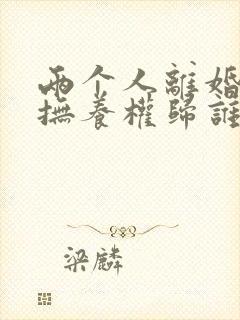 两个人離婚
撫養權歸誰
梁麟